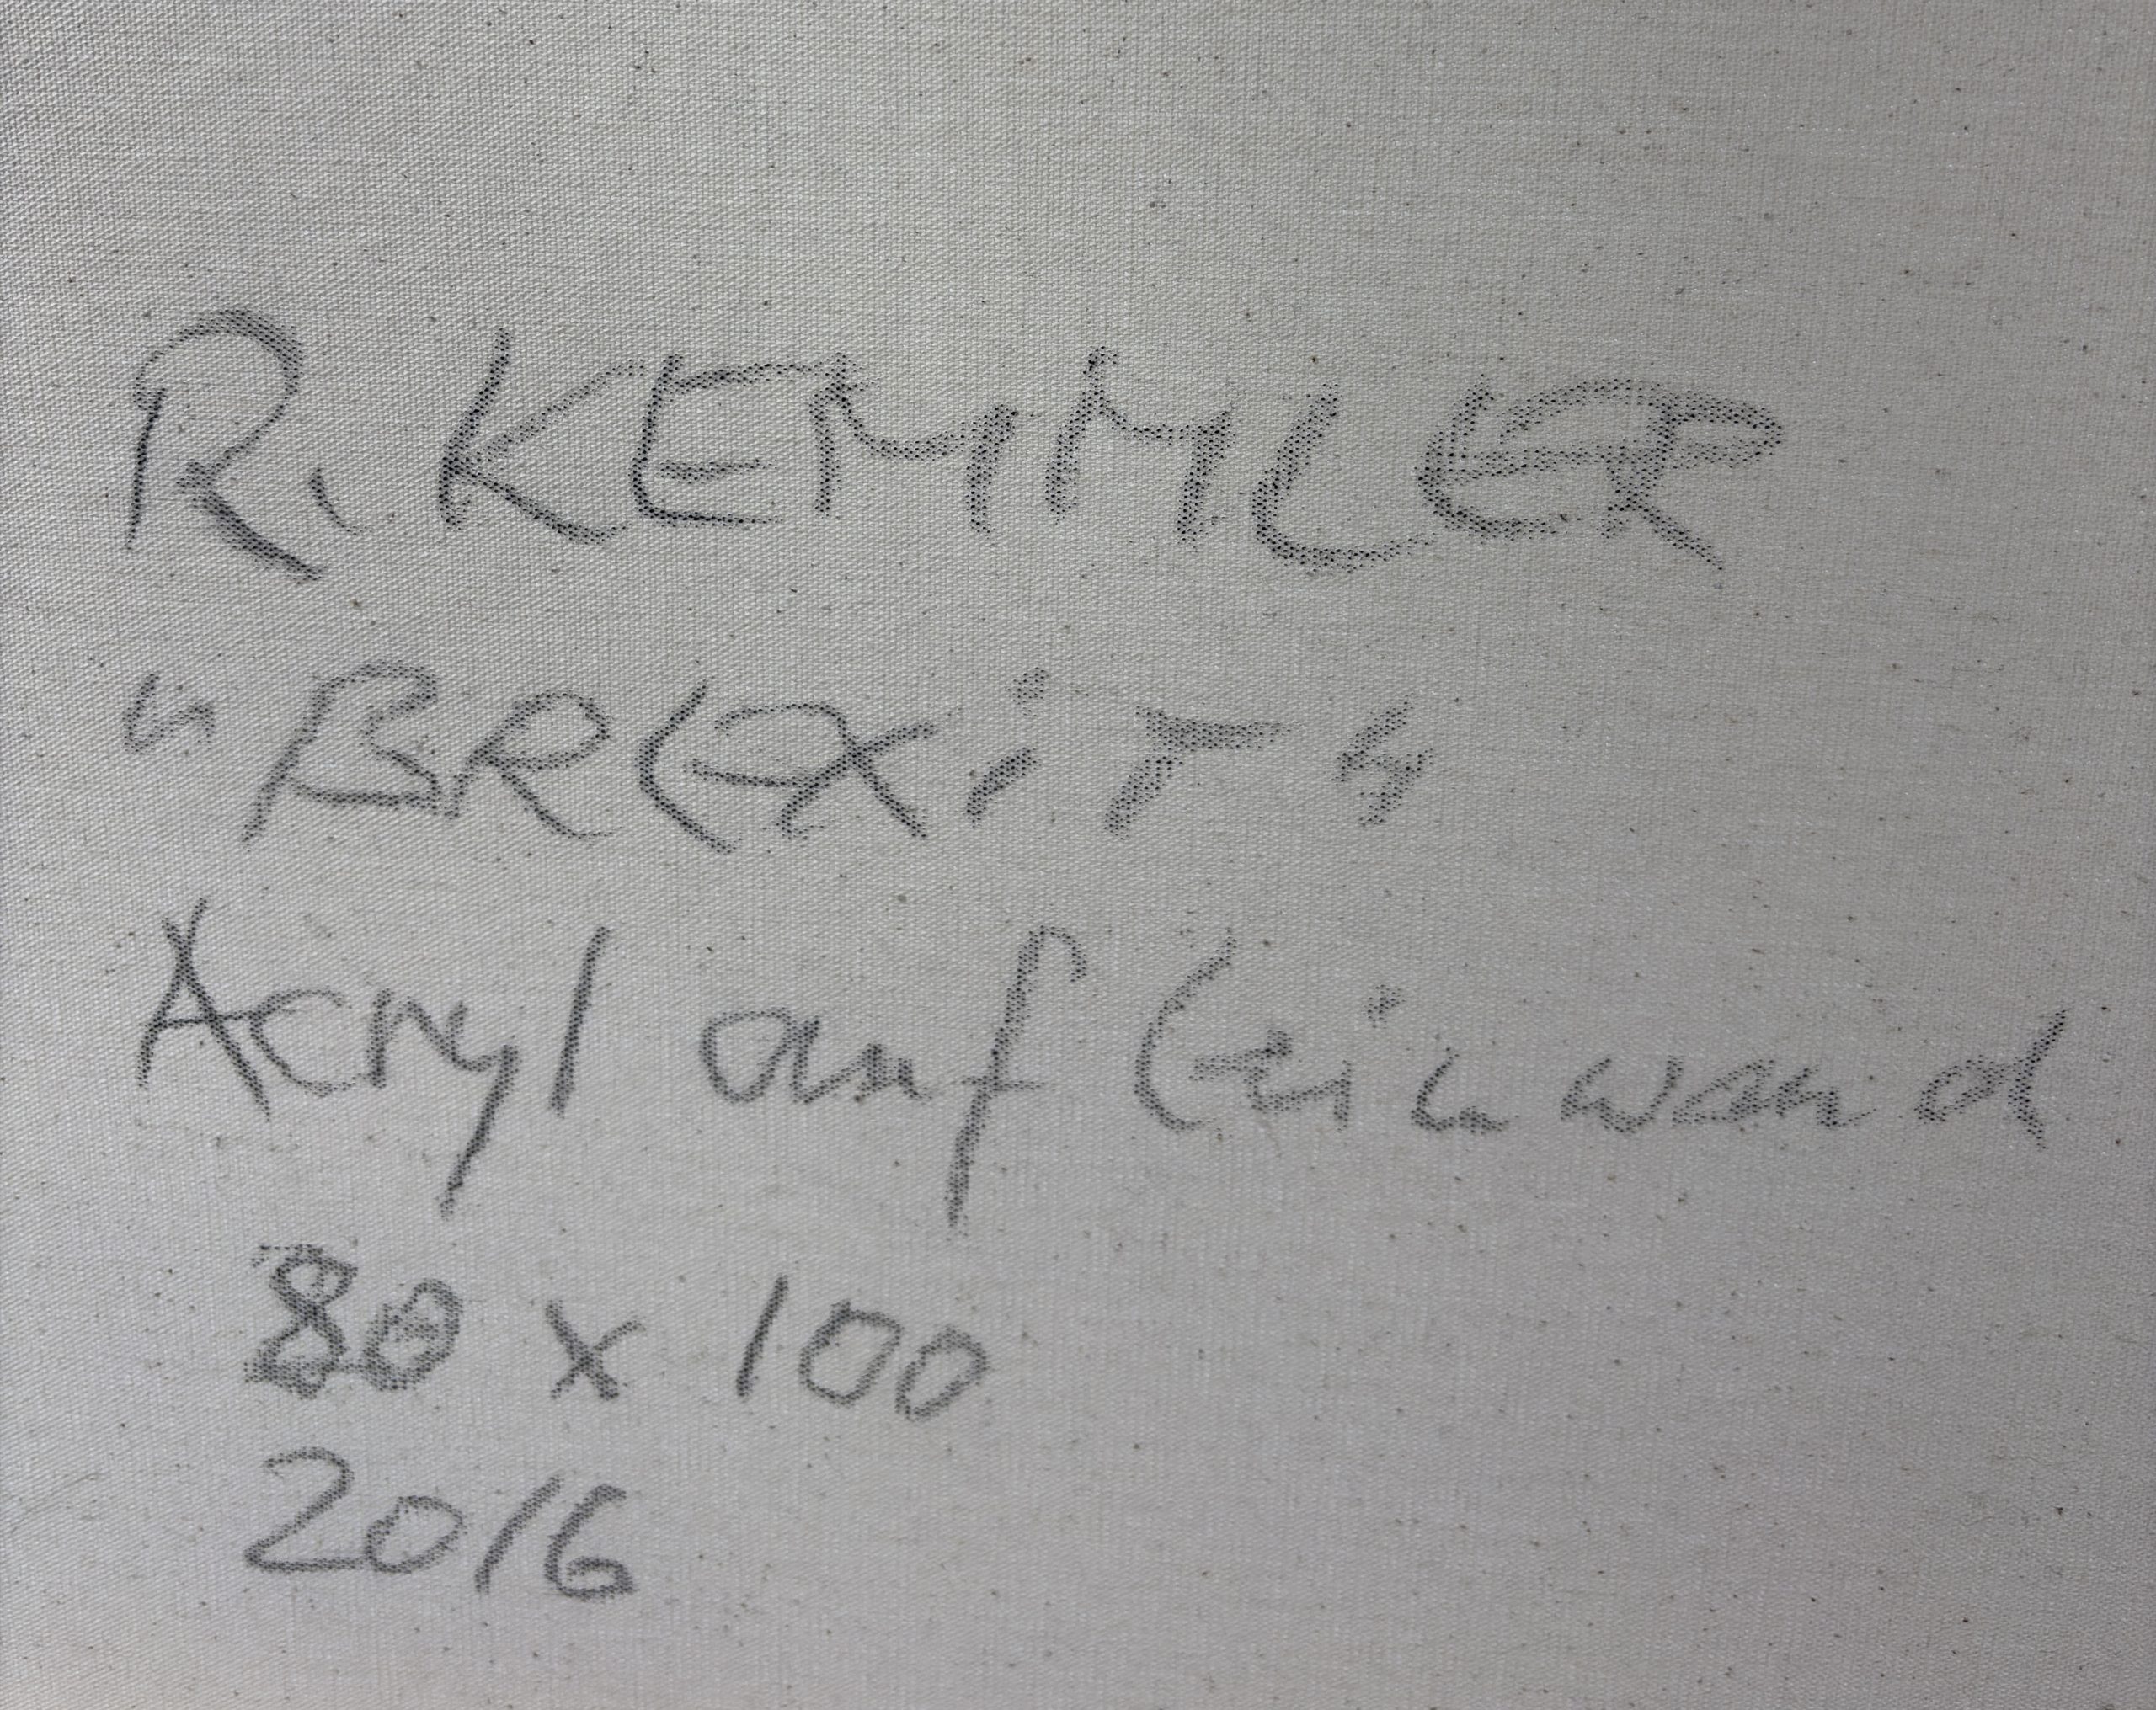 R. KEMMLER
"BREXiT"
Acryl auf Leinwand
80 x 100
2016